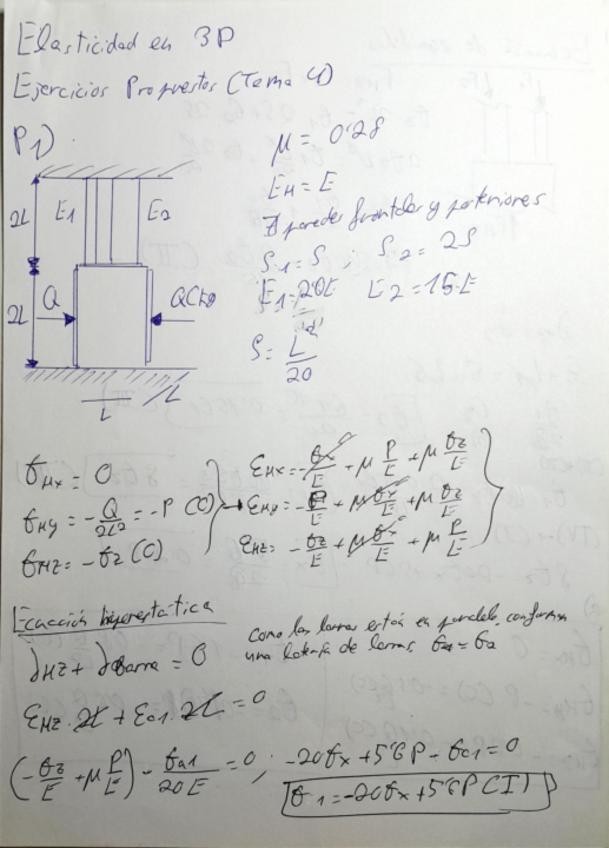 Elasticidad en 3D
Ejercicios Propuestos (Tema 4)
P1)
μ = 0'28
E_H = E
paredes frontales y posteriores
S_1 = S ; S_2 = 2S
E_1 = 20E E_2 = 15E
S = L² / 20
2L E_1 E_2
2L Q Q(kg)
L L
σ_Hx = 0
σ_Hy = -Q/2L² = -P (C)
σ_Hz = -σz (C)
ε_Hx = -σx/E + μ P/E + μ σz/E
ε_Hy = -P/E + μ σx/E + μ σz/E
ε_Hz = -σz/E + μ σx/E + μ P/E
Ecuación hiperestática
δ_Hz + δ_Barra = 0
como las barras están en paralelo, conforman
una batería de barras,
ε_Hz · 2L + ε_a1 · 2L = 0
(-σz/E + μ P/E) - σa1/20E = 0 ; -20σx + 5'6P - σa1 = 0
σ1 = -20σx + 5'6P (I)